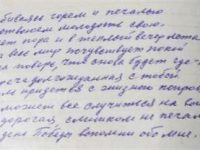 бивайся горем и печалью
молодость свою
пора и в теплый вечер лета
весь мир почувствует покой
поверь, что снова будет где-
долгожданная с тобой.
придется с жизнью попро
может все случиться на
дорогая, слишком не печал
день Победы вспомни обо мне.